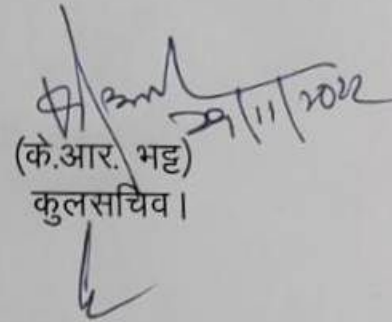 29/11/2022
(के.आर. भट्ट)
कुलसचिव।